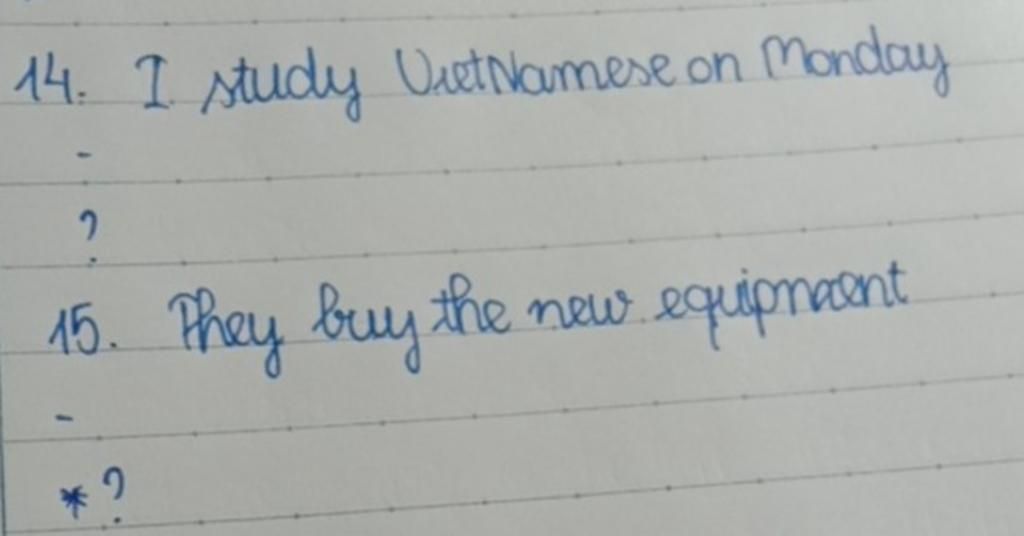 14. I study VietNamese on Monday
-
?
15. They buy the new equipment
-
* ?